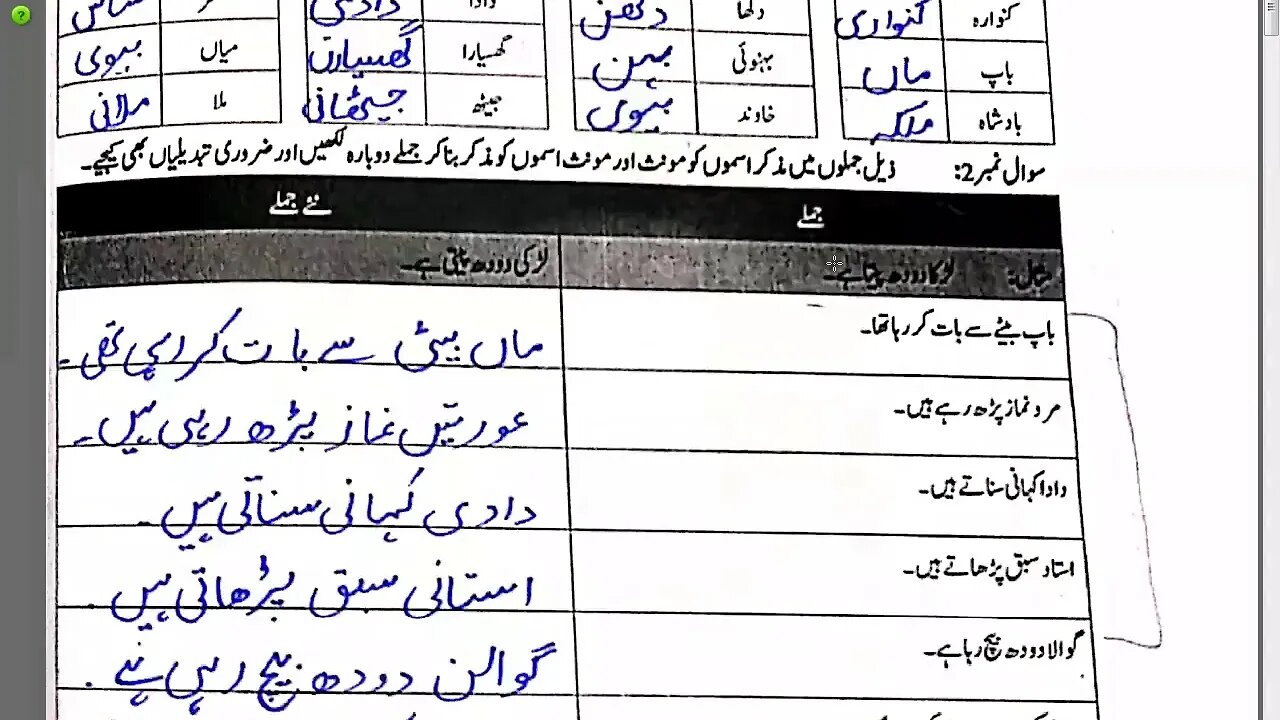 کنوارہ کنواری دلھا دلھن دادا دادی
باپ ماں بہنوئی بہن گھسیارا گھسیارن میاں بیوی
بادشاہ ملکہ خاوند بیوی جیٹھ جیٹھانی ملا ملانی
سوال نمبر 2: ذیل جملوں میں مذکر اسموں کو مونث اور مونث اسموں کو مذکر بنا کر جملے دوبارہ لکھیں اور ضروری تبدیلیاں بھی کیجیے۔
جملے نئے جملے
مثال: لڑکا دودھ پیتا ہے۔ لڑکی دودھ پیتی ہے۔
باپ بیٹے سے بات کر رہا تھا۔ ماں بیٹی سے بات کر رہی تھی۔
مرد نماز پڑھ رہے ہیں۔ عورتیں نماز پڑھ رہی ہیں۔
دادا کہانی سناتے ہیں۔ دادی کہانی سناتی ہیں۔
استاد سبق پڑھاتے ہیں۔ استانی سبق پڑھاتی ہیں۔
گوالا دودھ بیچ رہا ہے۔ گوالن دودھ بیچ رہی ہے۔